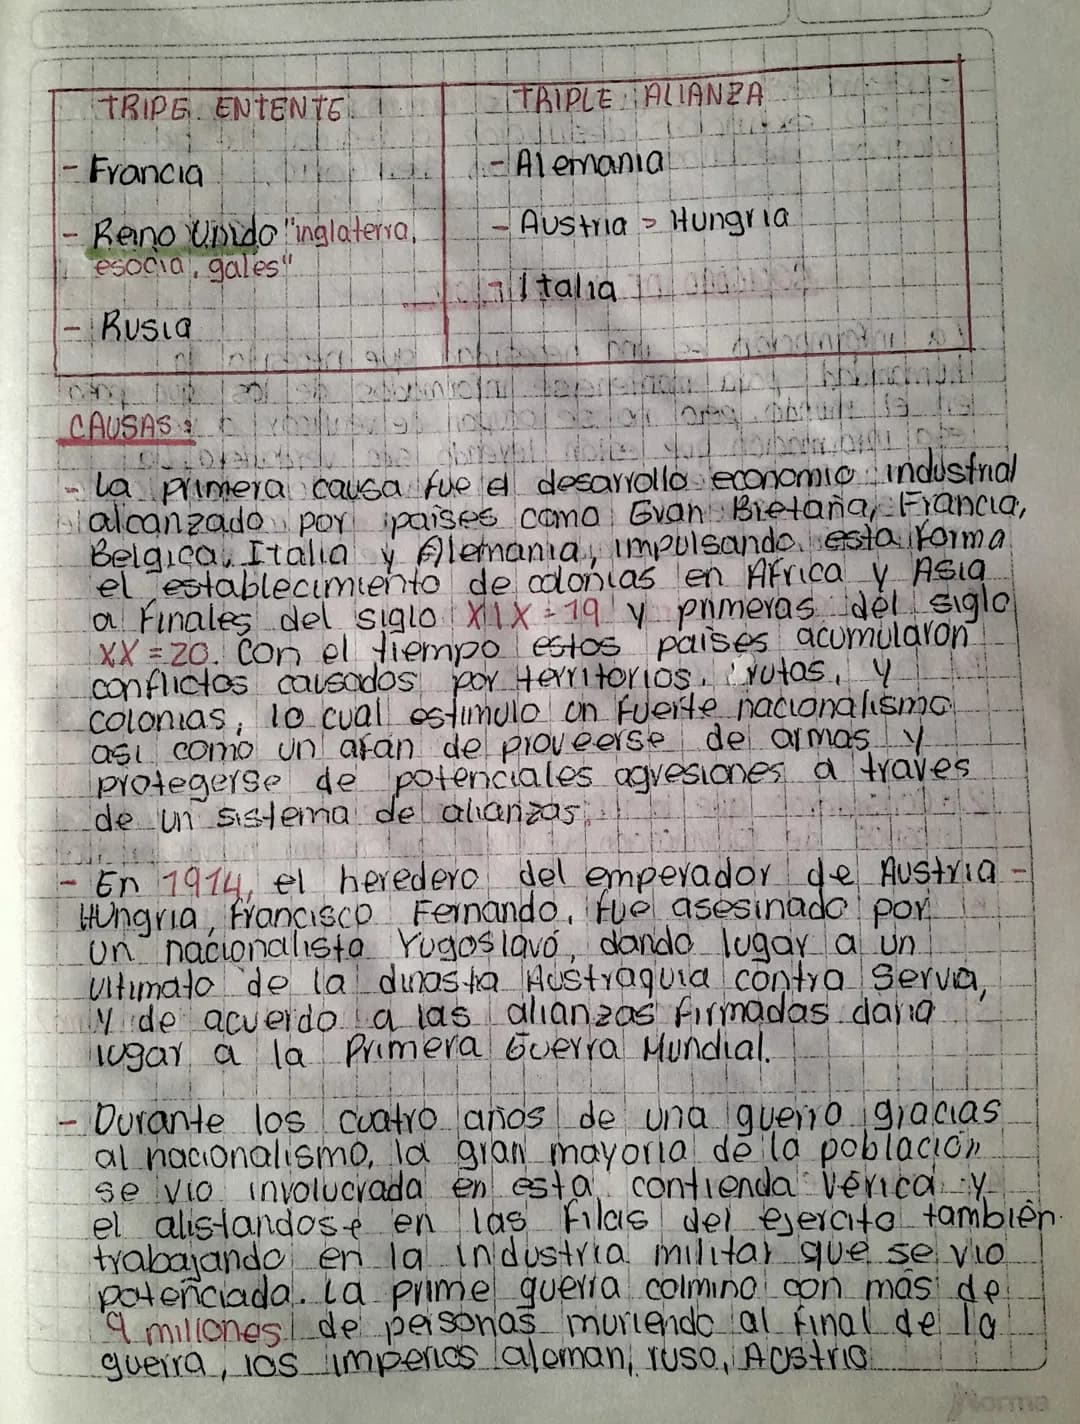 TRIPE ENTENTE
- Francia
- Reino Unido "inglaterra,
esocia, gales"
- Rusia
TRIPLE ALIANZA
- Alemania
- Austria > Hungria
- Italia
CAUSAS:
- La primera causa fue el desarrollo economio industrial
alcanzado por paises como Gran Bretaña, Francia,
Belgica, Italia y Alemania, impulsando esta forma
el establecimiento de colonias en Africa y Asia
a Finales del siglo XIX=19 y primeras del siglo
XX=20. Con el tiempo estos paises acumularon
conflictos causados por territorios, rutas, y
colonias, lo cual estimulo un fuerte nacionalismo
asi como un afan de proveerse de armas y
protegerse de potenciales agresiones a traves
de un sistema de alianzas.
- En 1914, el heredero del emperador de Austria -
Hungria, Francisco Fernando, fue asesinado por
un nacionalista Yugoslavo, dando lugar a un
ultimato de la dinastia Austraquia contra Servia,
y de acuerdo a las alianzas firmadas daria
lugar a la Primera Guerra Mundial.
- Durante los cuatro años de una guerra gracias
al nacionalismo, la gran mayoria de la población
se vio involucrada en esta contienda vérica y
el alistandose en las filas del ejercito también
trabajando en la industria militar que se vio
potenciada. La prime guerra colmino con más de
9 millones de personas muriendo al final de la
guerra, los imperios aleman, ruso, Austrio
Norma